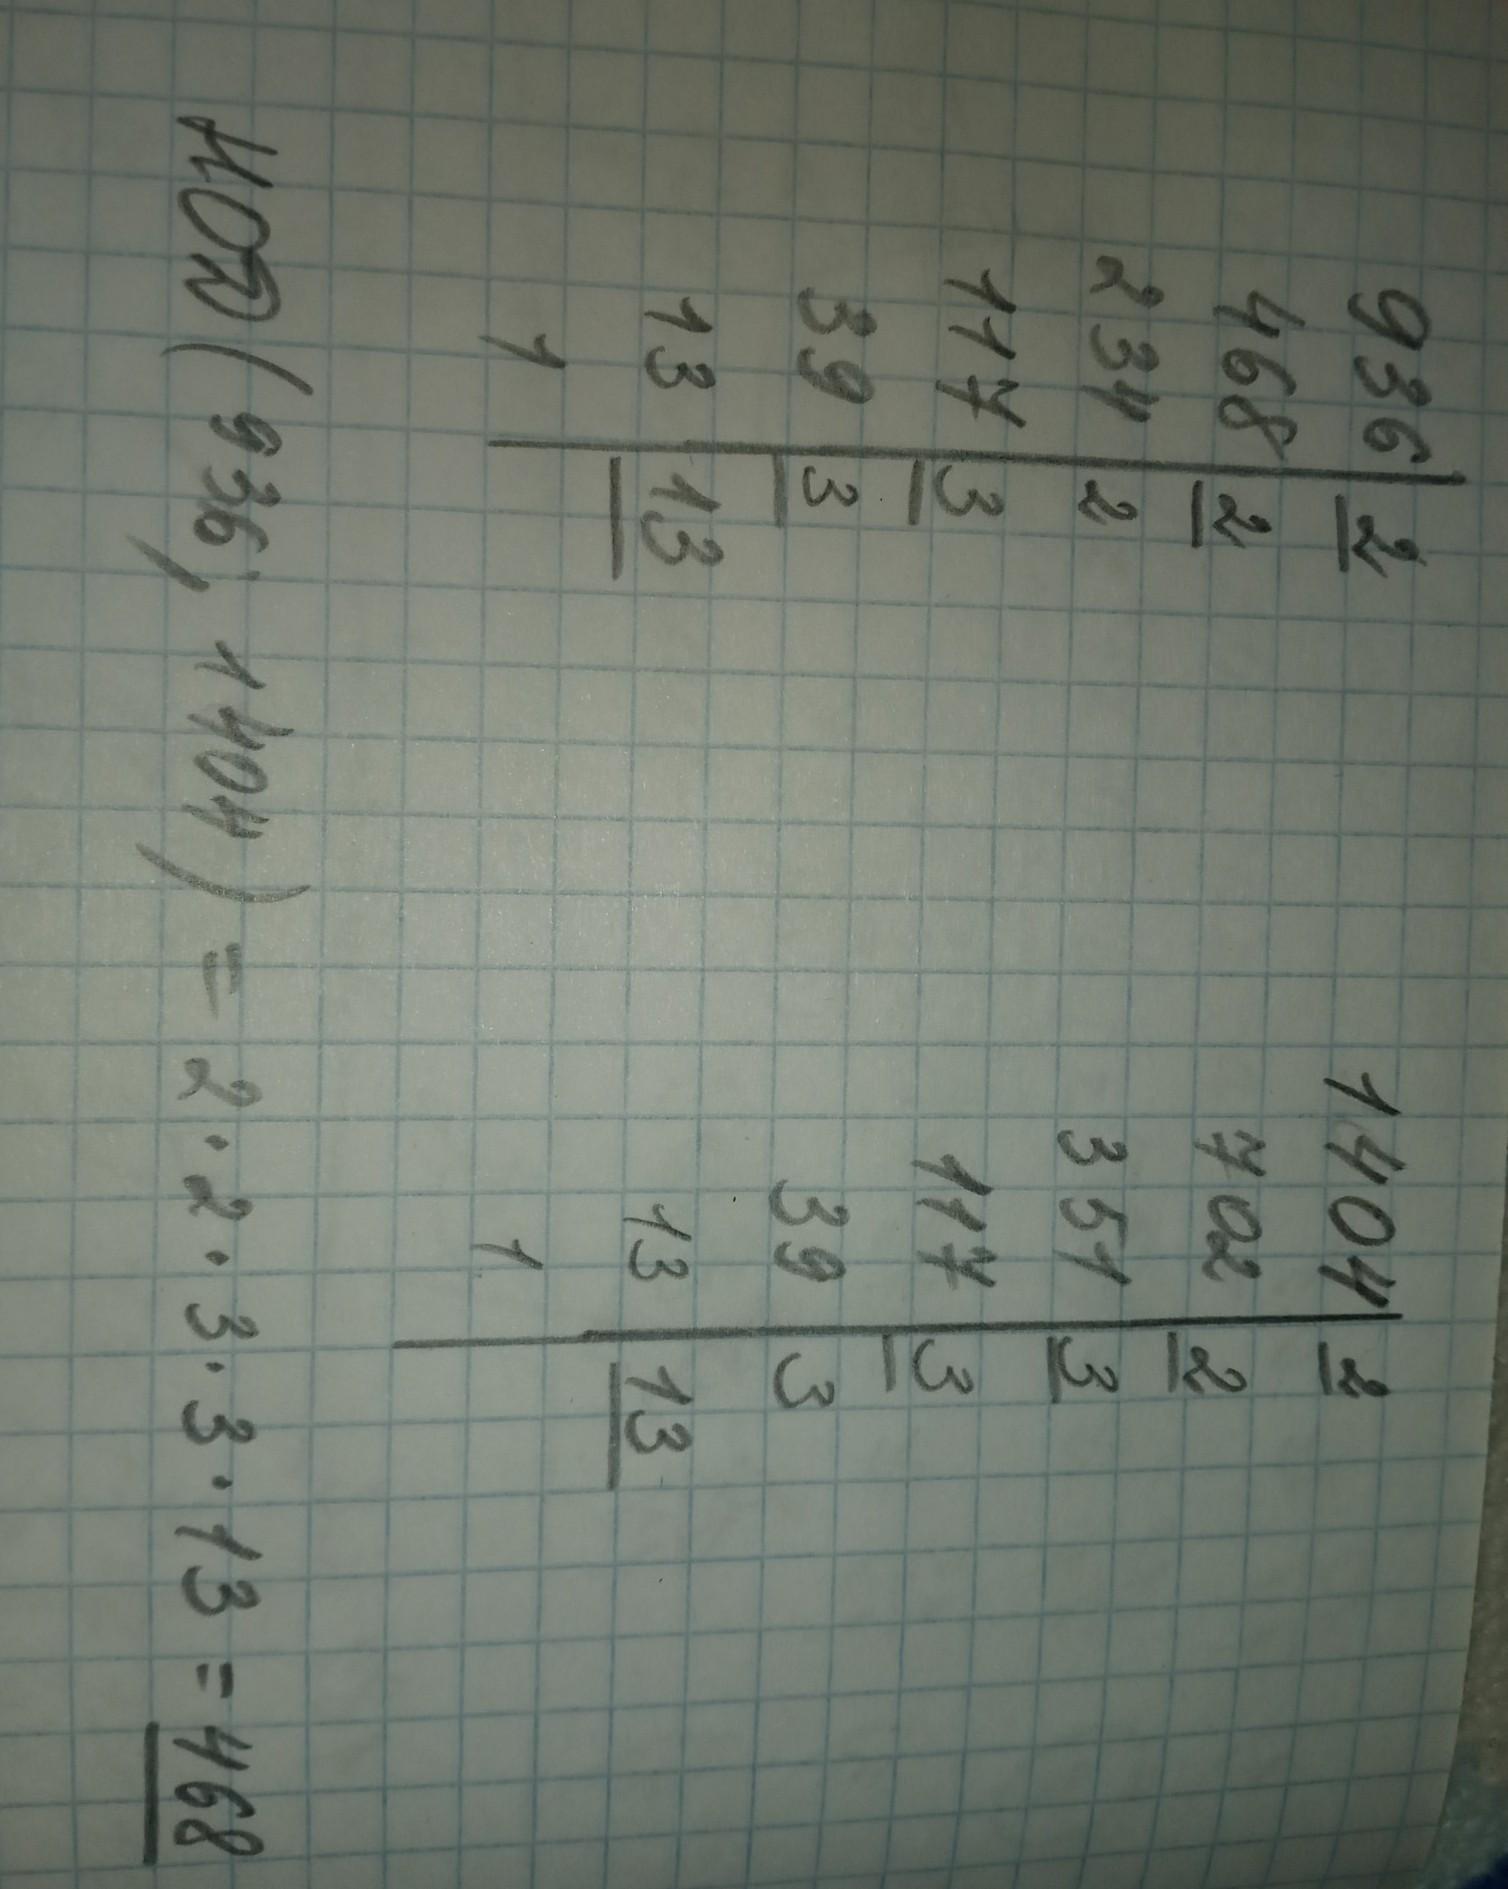 936 | 2 1404 | 2
468 | 2 702 | 2
234 | 2 351 | 3
117 | 3 117 | 3
39 | 3 39 | 3
13 | 13 13 | 13
1 1
НОД (936, 1404) = 2·2·3·3·13 = 468